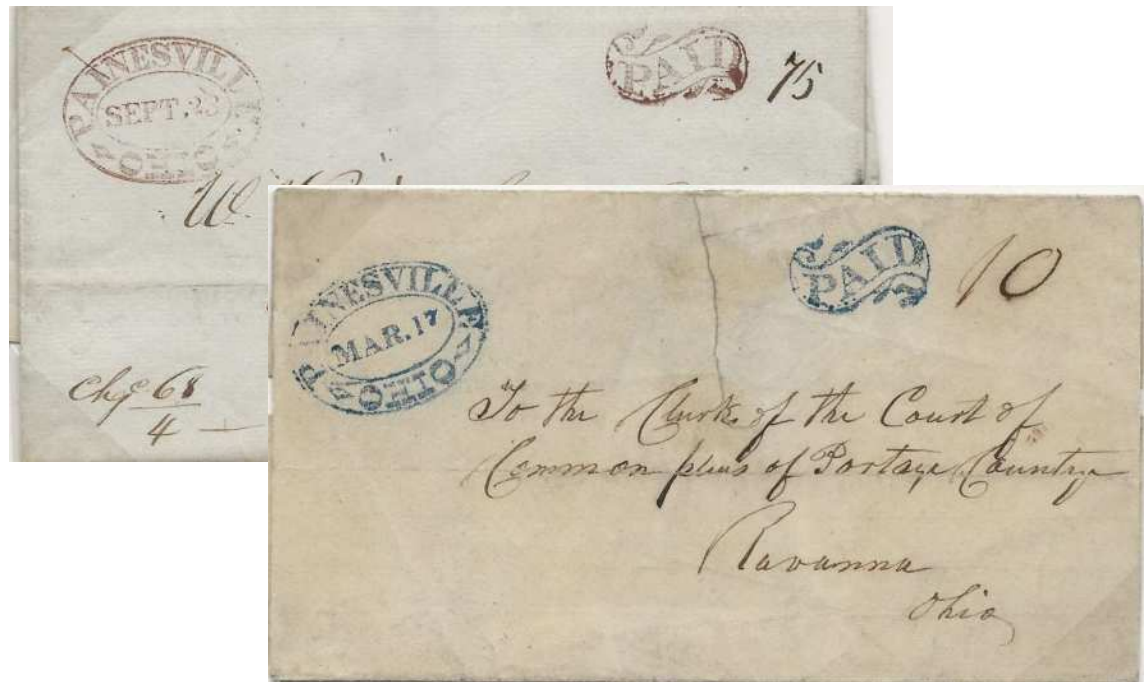 PAINESVILLE
SEPT. 23
OHIO
PAID
75
W.
Chg 68
4
PAINESVILLE
MAR. 17
OHIO
PAID
10
To the Clerk of the Court of
Common pleas of Portage County
Ravanna
Ohio